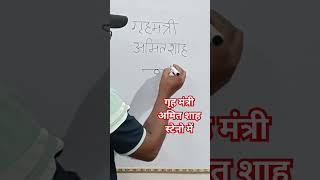 गृहमंत्री
अमित शाह
गृह मंत्री
अमित शाह
स्टेनो में